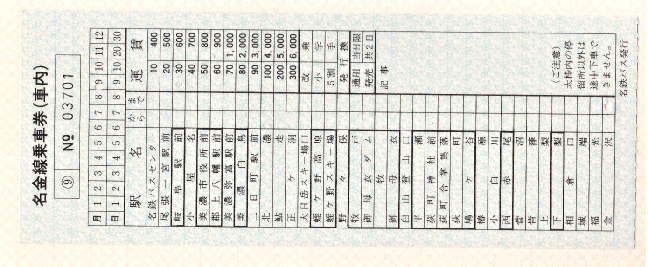 名金線乗車券(車内)
⑨ № 03701
月 1 2 3 4 5 6 7 8 9 10 11 12
日 1 2 3 4 5 6 7 8 9 10 20 30
駅名 から まで 運賃
名鉄バスセンター
尾張一宮駅前
岐阜駅前
小屋名
美濃市役所前
郡上八幡駅前
美濃弥富駅前
美濃白鳥
二日町駅前
北濃
鮎走
正ケ洞
大日岳スキー場口
蛭ケ野高原
蛭ケ野スキー場
野々俣
牧戸
御母衣ダム
牧
御母衣
白山登山口
平瀬
荻町神社前
荻町合掌集落
荻町
鳩ケ谷
椿原
小白川
西赤尾
菅沼
上梨
下梨
相倉口
城端
福光
金沢
10 400
20 500
30 600
40 700
50 800
60 900
70 1,000
80 2,000
90 3,000
100 4,000
200 5,000
300 6,000
改 乗
小 学
5割 手
発行 換
通用 当日限
発売共2日
記事
(ご注意)
太枠内の停
留所以外は
途中下車で
きません。
名鉄バス発行